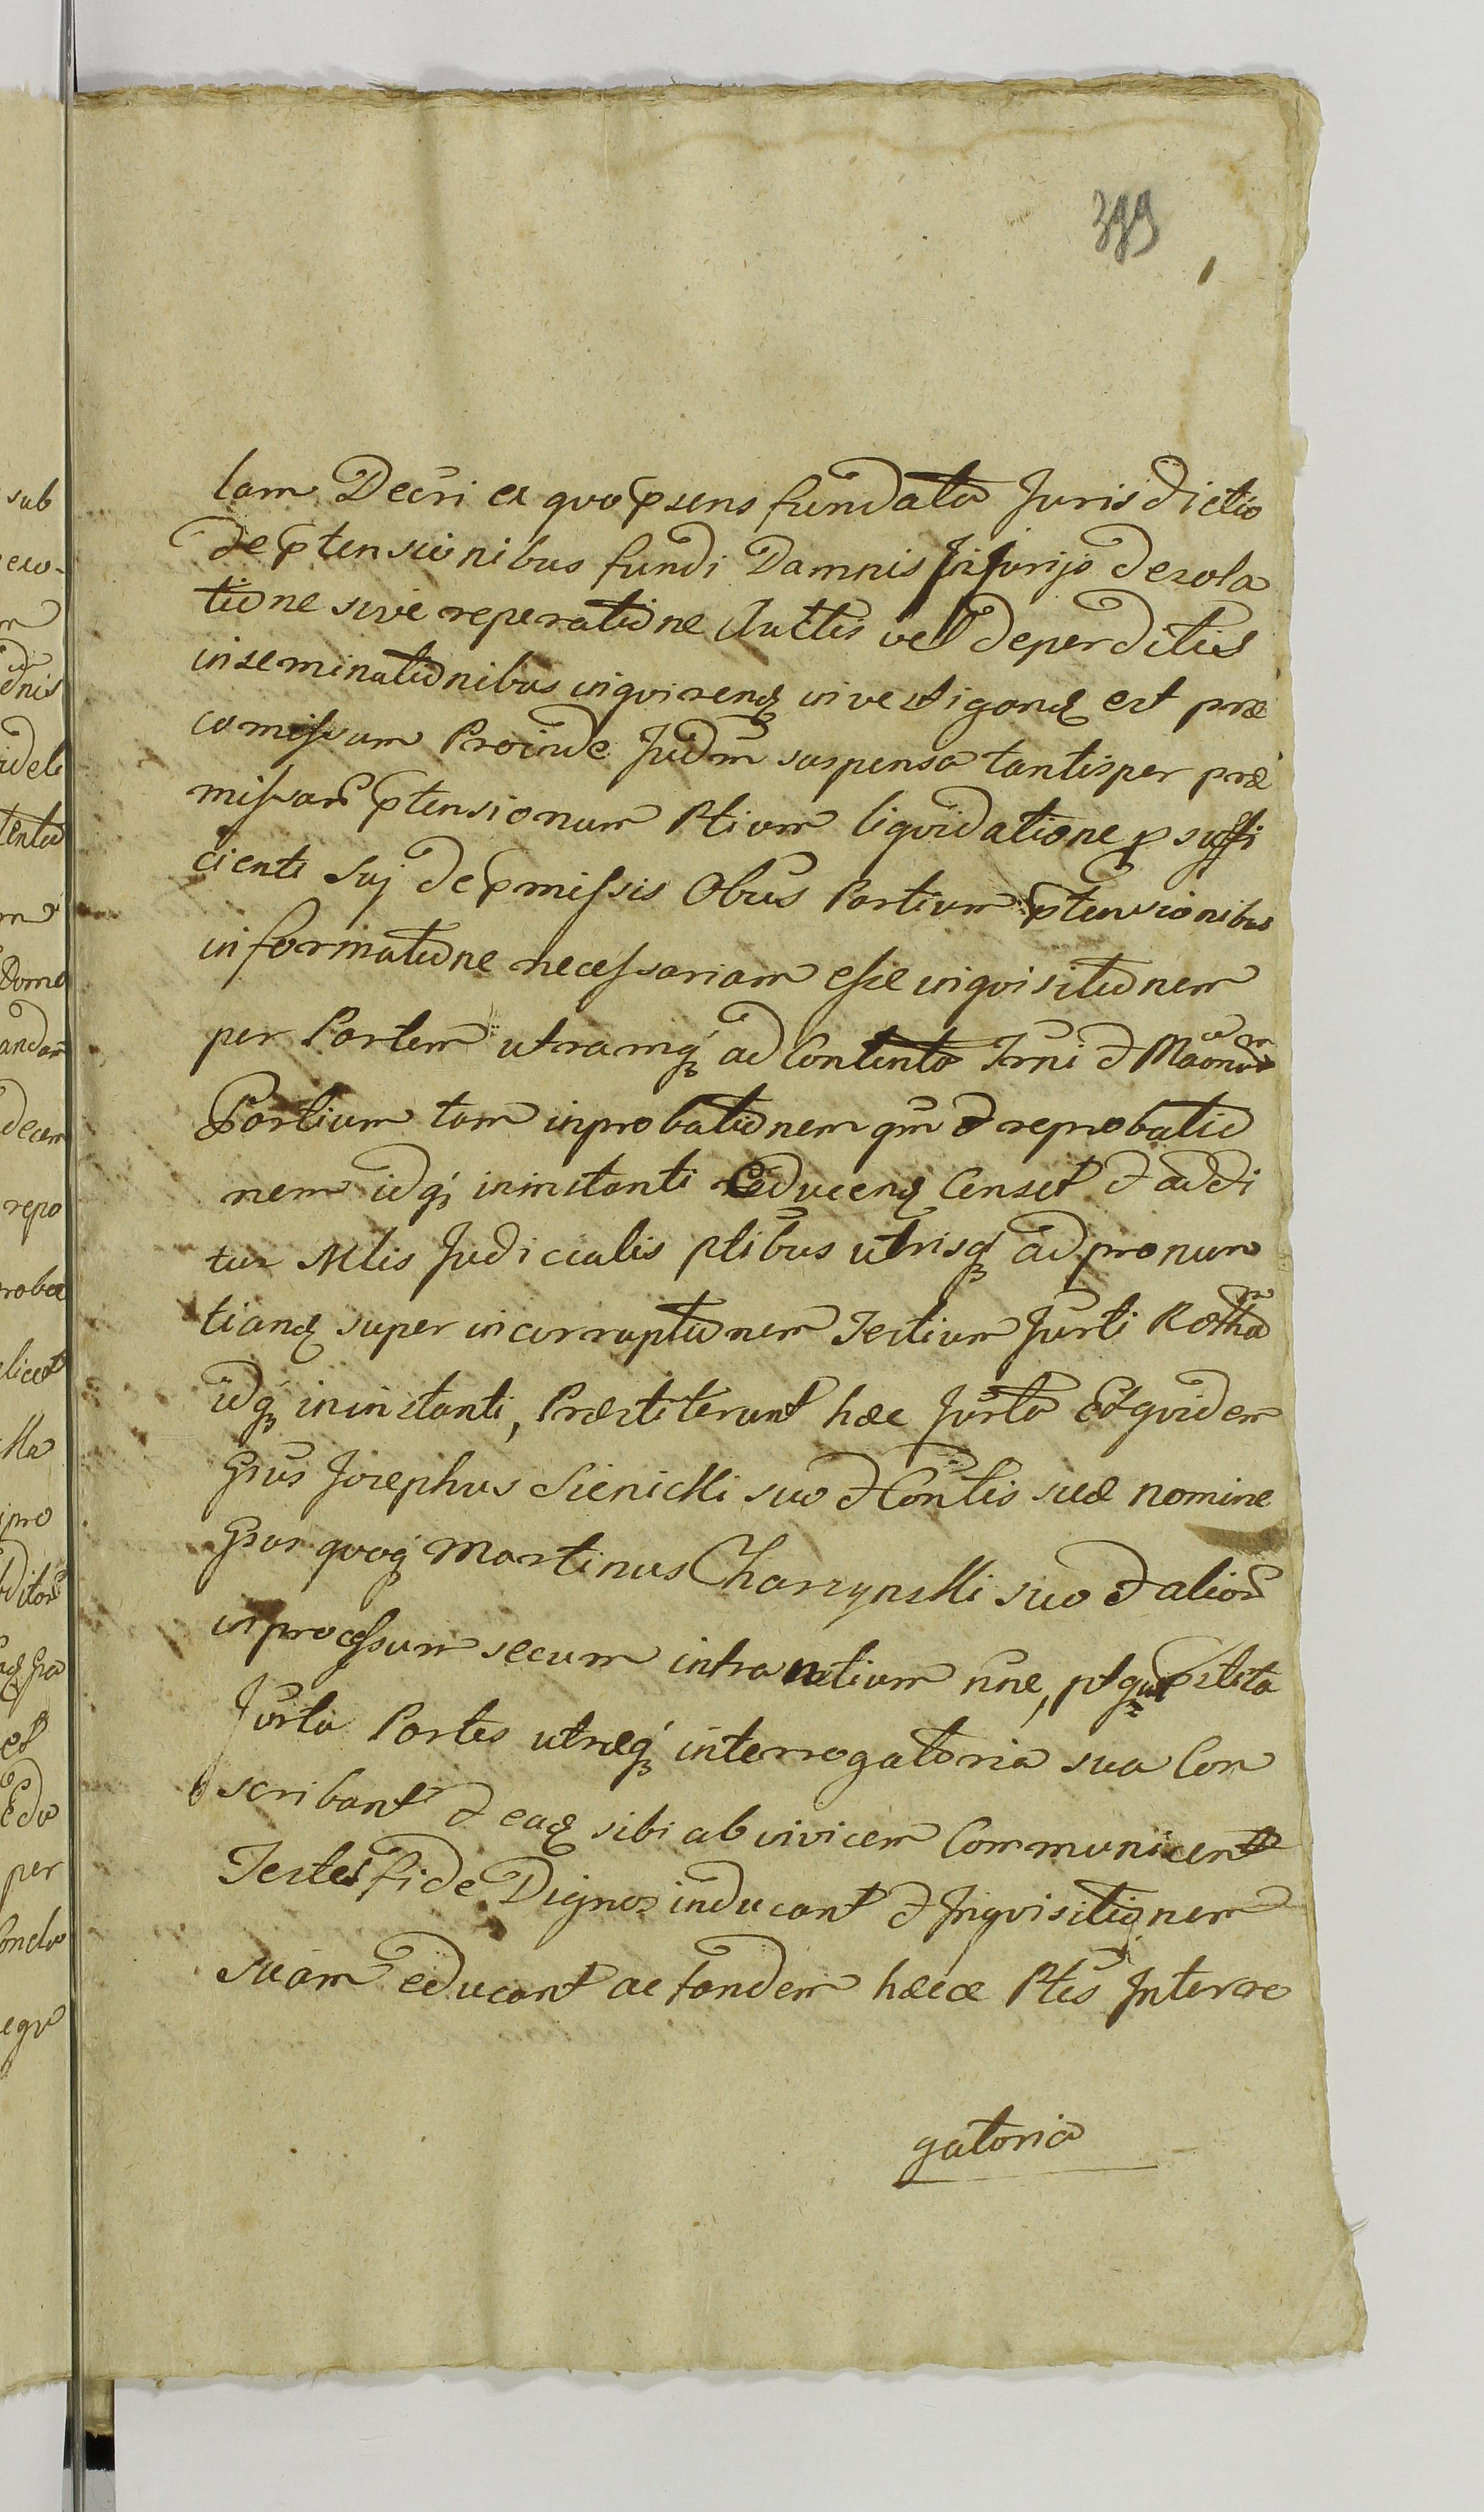 399
lam Decri ex quo psens fundata Jurisdictio
de ptensionibus fundi Damnis Injurijs desola
tione sive reperatione Auctis vel deperditis
inseminationibus inquirendq investigandq est præ
comissum Proinde Judm suspensa tantisper præ
missar ptensionum Ptium liquidatione p suffi
cienti Suj de pmissis Obus Partium ptensionibus
informatione necessariam esse inquisitionem
per Partem utramq ad Contenta Trni & 
Partium tam in probationem qm & reprobatio
nem idq in instanti Educendq Censet & addi
tur Mlis Judicialis ptibus utrisq ad pronun
tiandq super incorruptionem Testium Jurti Rotham
idq in instanti, Præstiterunt hæc Jurta Et quidem
Gsus Josephus Sienicki suo & Contis suæ nomine
Gsus quoq Martinus Charzynski suo & alior
in processum secum intrantium nne, pt qua pstita
Jurta Partes utræq interrogatoria sua Con
scribant & eaq sibi ab invicem Communicent
Testes fide Dignos inducant & Inquisitionem
suam educant ac tandem hæcce Ptes Interro
gatoria